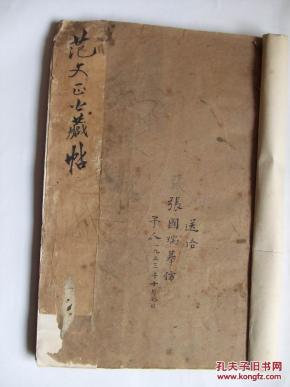 范文正公藏帖
送給
張國瑞幕僚
于八
一九五三年十月
孔夫子旧书网